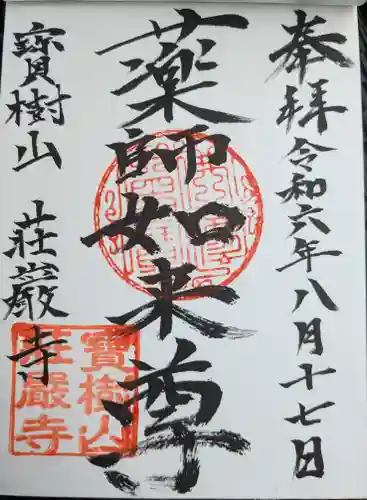 奉拝 令和六年八月十七日
薬師如来尊
寶樹山 荘嚴寺
寶樹山
荘嚴寺